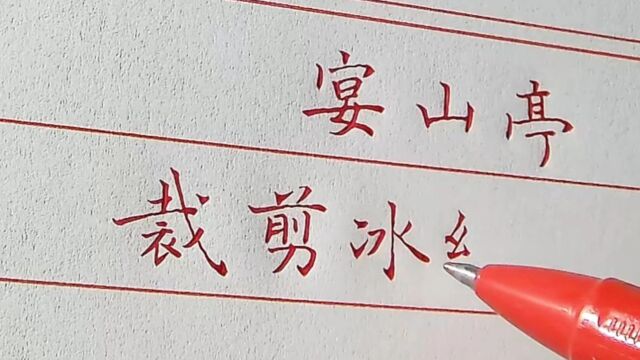 宴山亭
裁剪冰